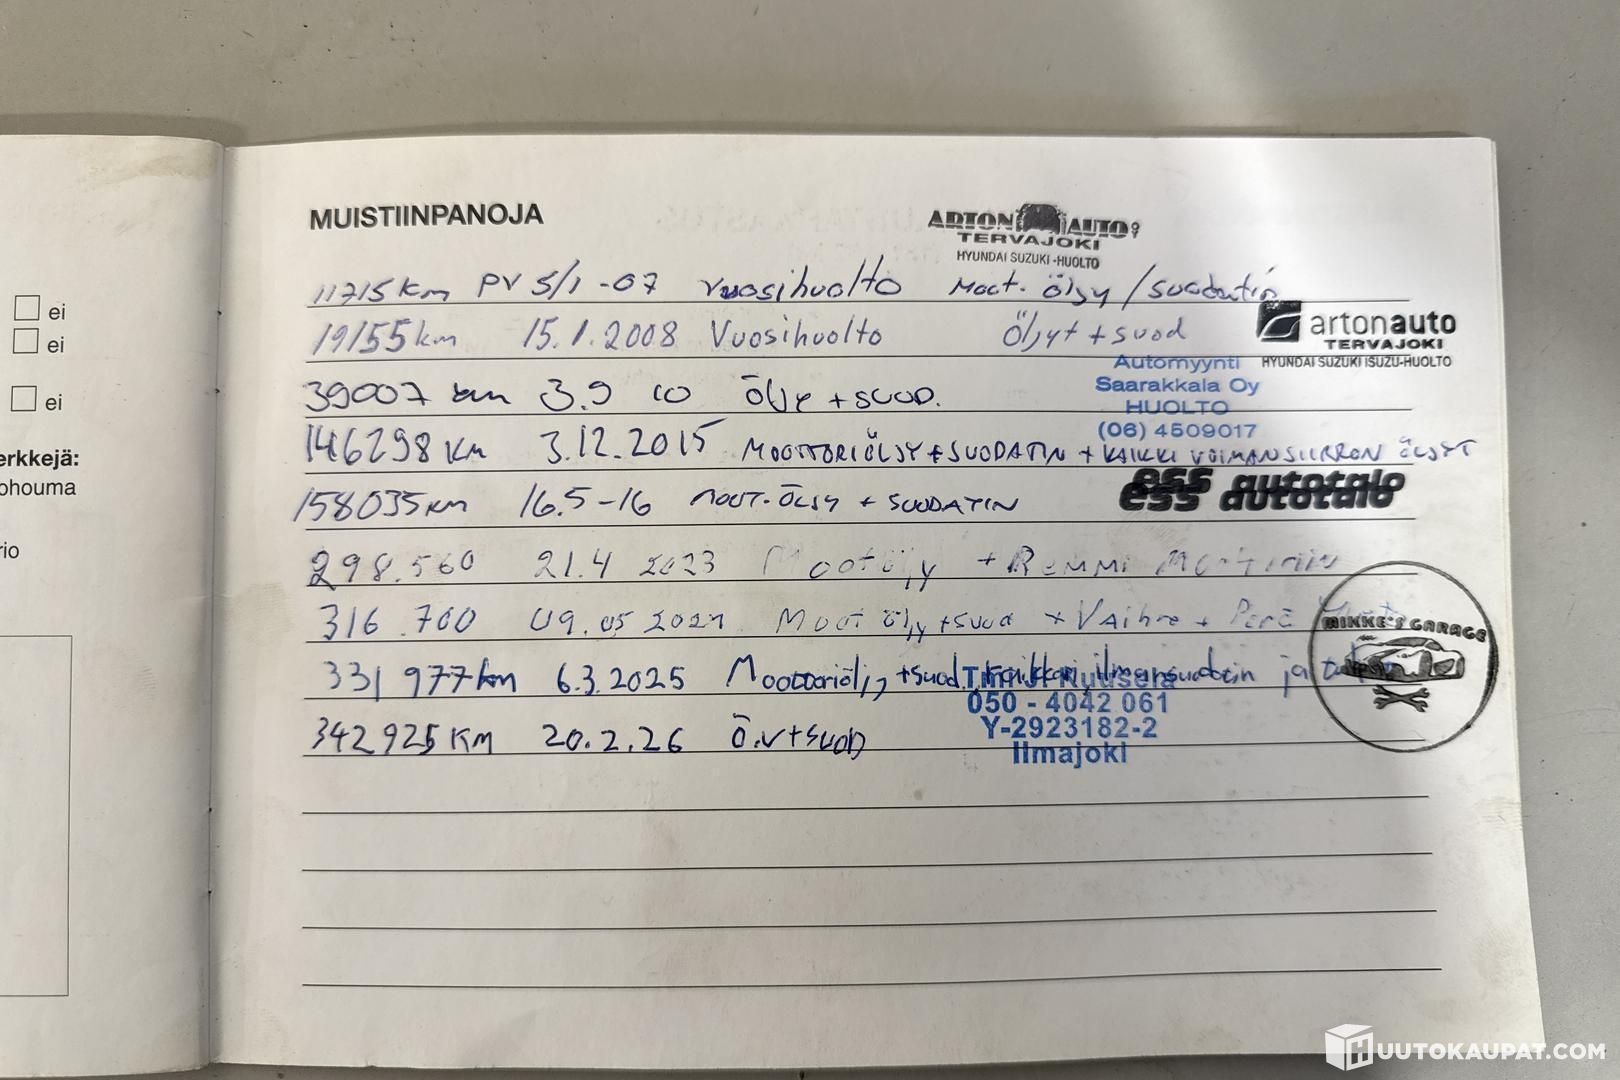 MUISTIINPANOJA
ARTON AUTO OY
TERVAJOKI
HYUNDAI SUZUKI -HUOLTO
11715 km PV 5/1 -07 Vuosihuolto Moot. öljy / suodatin
19155 km 15.1.2008 Vuosihuolto Öljyt + suod
artonauto
TERVAJOKI
HYUNDAI SUZUKI ISUZU-HUOLTO
Automyynti
Saarakkala Oy
HUOLTO
(06) 4509017
39007 km 3.9 10 ÖLJY + SUOD.
146298 KM 3.12.2015 MOOTTORIÖLJY + SUODATIN + KAIKKI VOIMANSIIRRON ÖLJYT
ess autotalo
ess autotalo
158035 KM 16.5-16 MOOT.ÖLJY + SUODATIN
298.560 21.4 2023 Moot öljy + REMMI
316.700 09.05 Moot öljy + suod + VAIHDE + PERÄ
MIKKE'S GARAGE
331 977 km 6.3.2025 Moottoriöljy + suod, ilmansuodatin ja
050 - 4042 061
Y-2923182-2
Ilmajoki
342925 KM 20.2.26 Ö.V + SUOD
ei
ei
ei
erkkejä:
ohouma
rio
HUUTOKAUPAT.COM